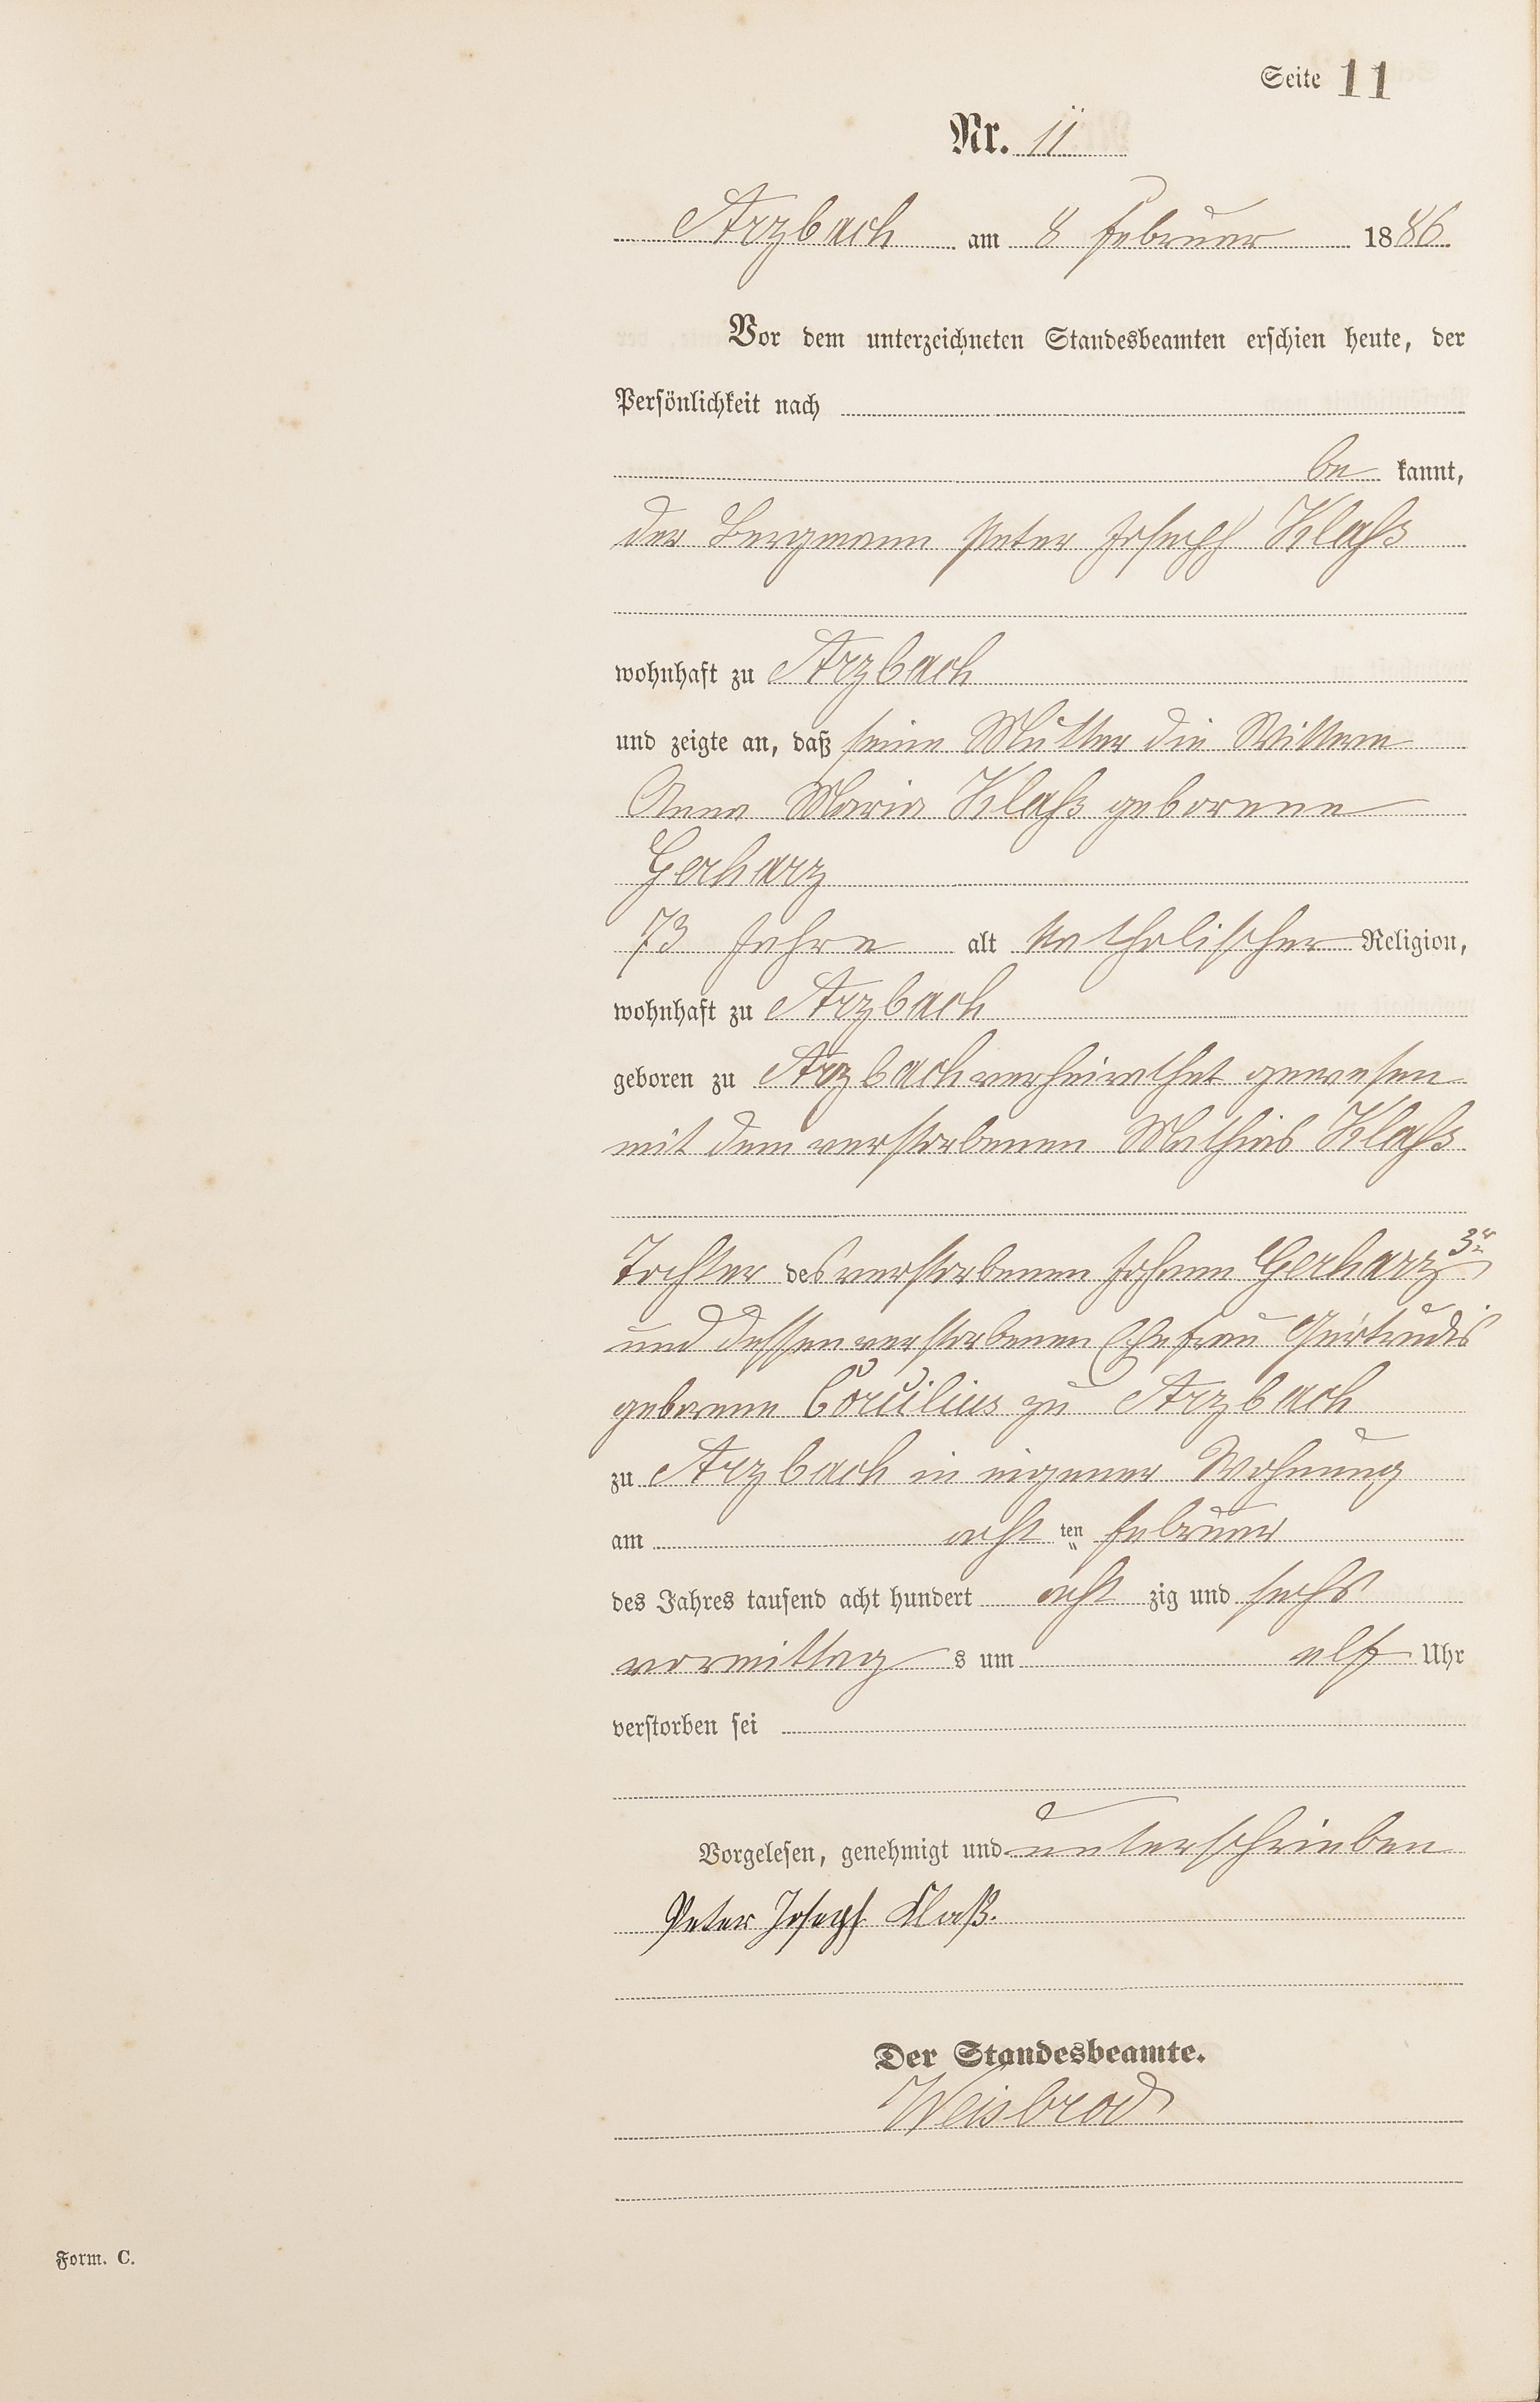 Seite 11
Nr. 11
Arzbach am 8 Februar 1886
Vor dem unterzeichneten Standesbeamten erschien heute, der
Persönlichkeit nach
be kannt,
der Bergmann Peter Joseph Klaß
wohnhaft zu Arzbach
und zeigte an, daß seine Mutter die Wittwe
Anna Maria Klaß geborene
Gerharz
73 Jahre alt katholischer Religion,
wohnhaft zu Arzbach
geboren zu Arzbach verheirathet gewesen
mit dem verstorbenen Mathias Klaß
Tochter des verstorbenen Johann Gerharz 3r
und dessen verstorbenen Ehefrau Gertrudis
geborene Corcilius zu Arzbach
zu Arzbach in eigener Wohnung
am acht ten Februar
des Jahres tausend acht hundert acht zig und sechs
vormittag s um elf Uhr
verstorben sei
Vorgelesen, genehmigt und unterschrieben
Peter Joseph Klaß.
Der Standesbeamte.
Weisbrod
Form. C.